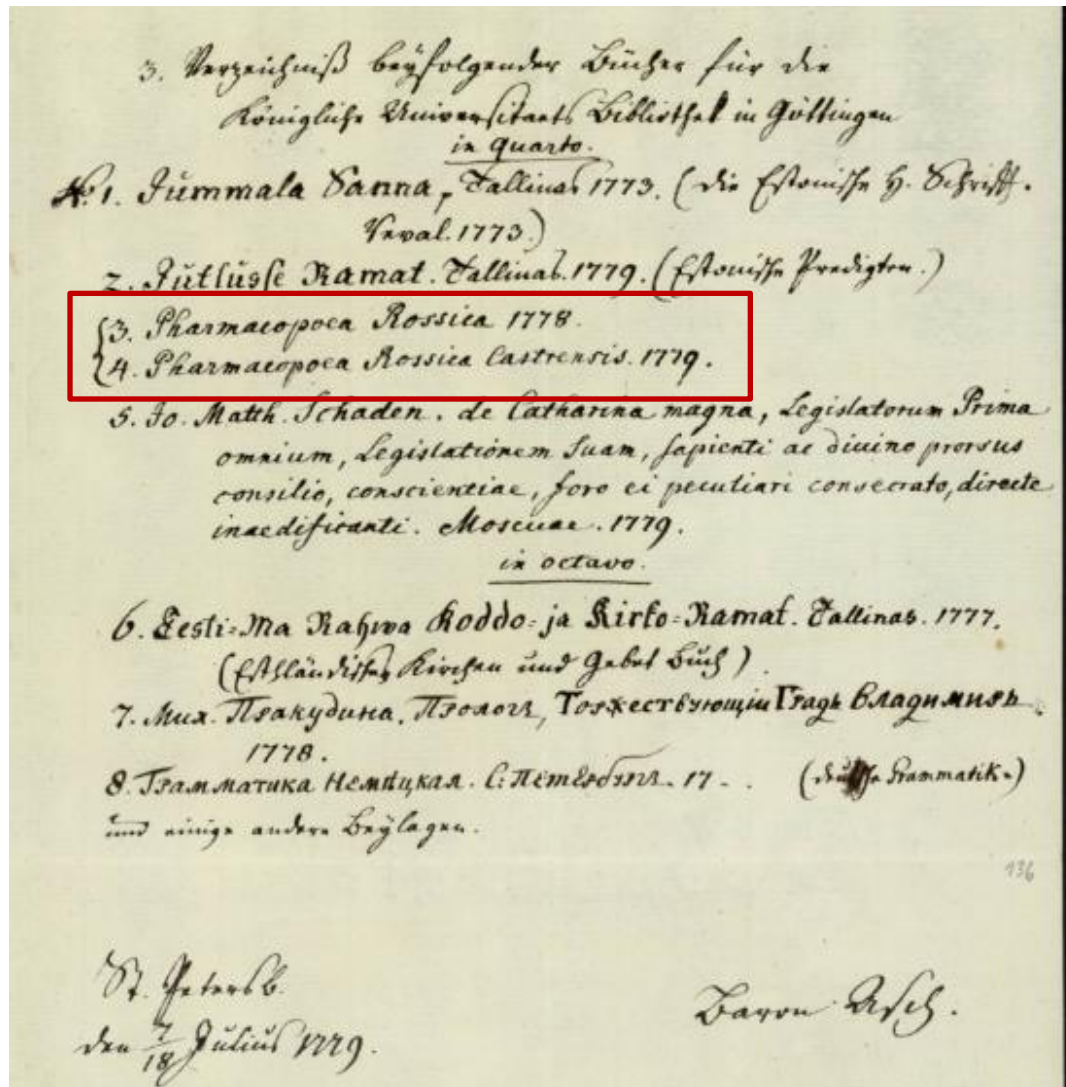 3. Verzeichniß beyfolgender Bücher für die
Königliche Universitaets Bibliothek in Göttingen
in quarto.
No. 1. Jummala Sanna, Tallinas 1773. (die Estonische H. Schrifft.
Reval. 1773.)
2. Jutlusse Ramat. Tallinas. 1779. (Estonische Predigten.)
3. Pharmacopoea Rossica 1778.
4. Pharmacopoea Rossica Castrensis. 1779.
5. Jo. Matth. Schaden. de Catharina magna, Legislatorum Prima
omnium, Legislationem Suam, sapienti ac divino prorsus
consilio, conscientiae, foro ei peculiari consecrato, directe
inaedificanti. Moscuae. 1779.
in octavo.
6. Eesti-Ma Rahwa Koddo- ja Kirko-Ramat. Tallinas. 1777.
(Esthländisches Kirchen und Gebet Buch)
7. Мих. Пракудина, Прологъ, Торжествующiи Градъ Владимиръ
1778.
8. Грамматика Немѣцкая. С: Петербургъ. 17 - . (deutsche Grammatik.)
und einige andere Beylagen.
136
St. Petersb.
den 7/18 Julius 1779.
Baron Asch.